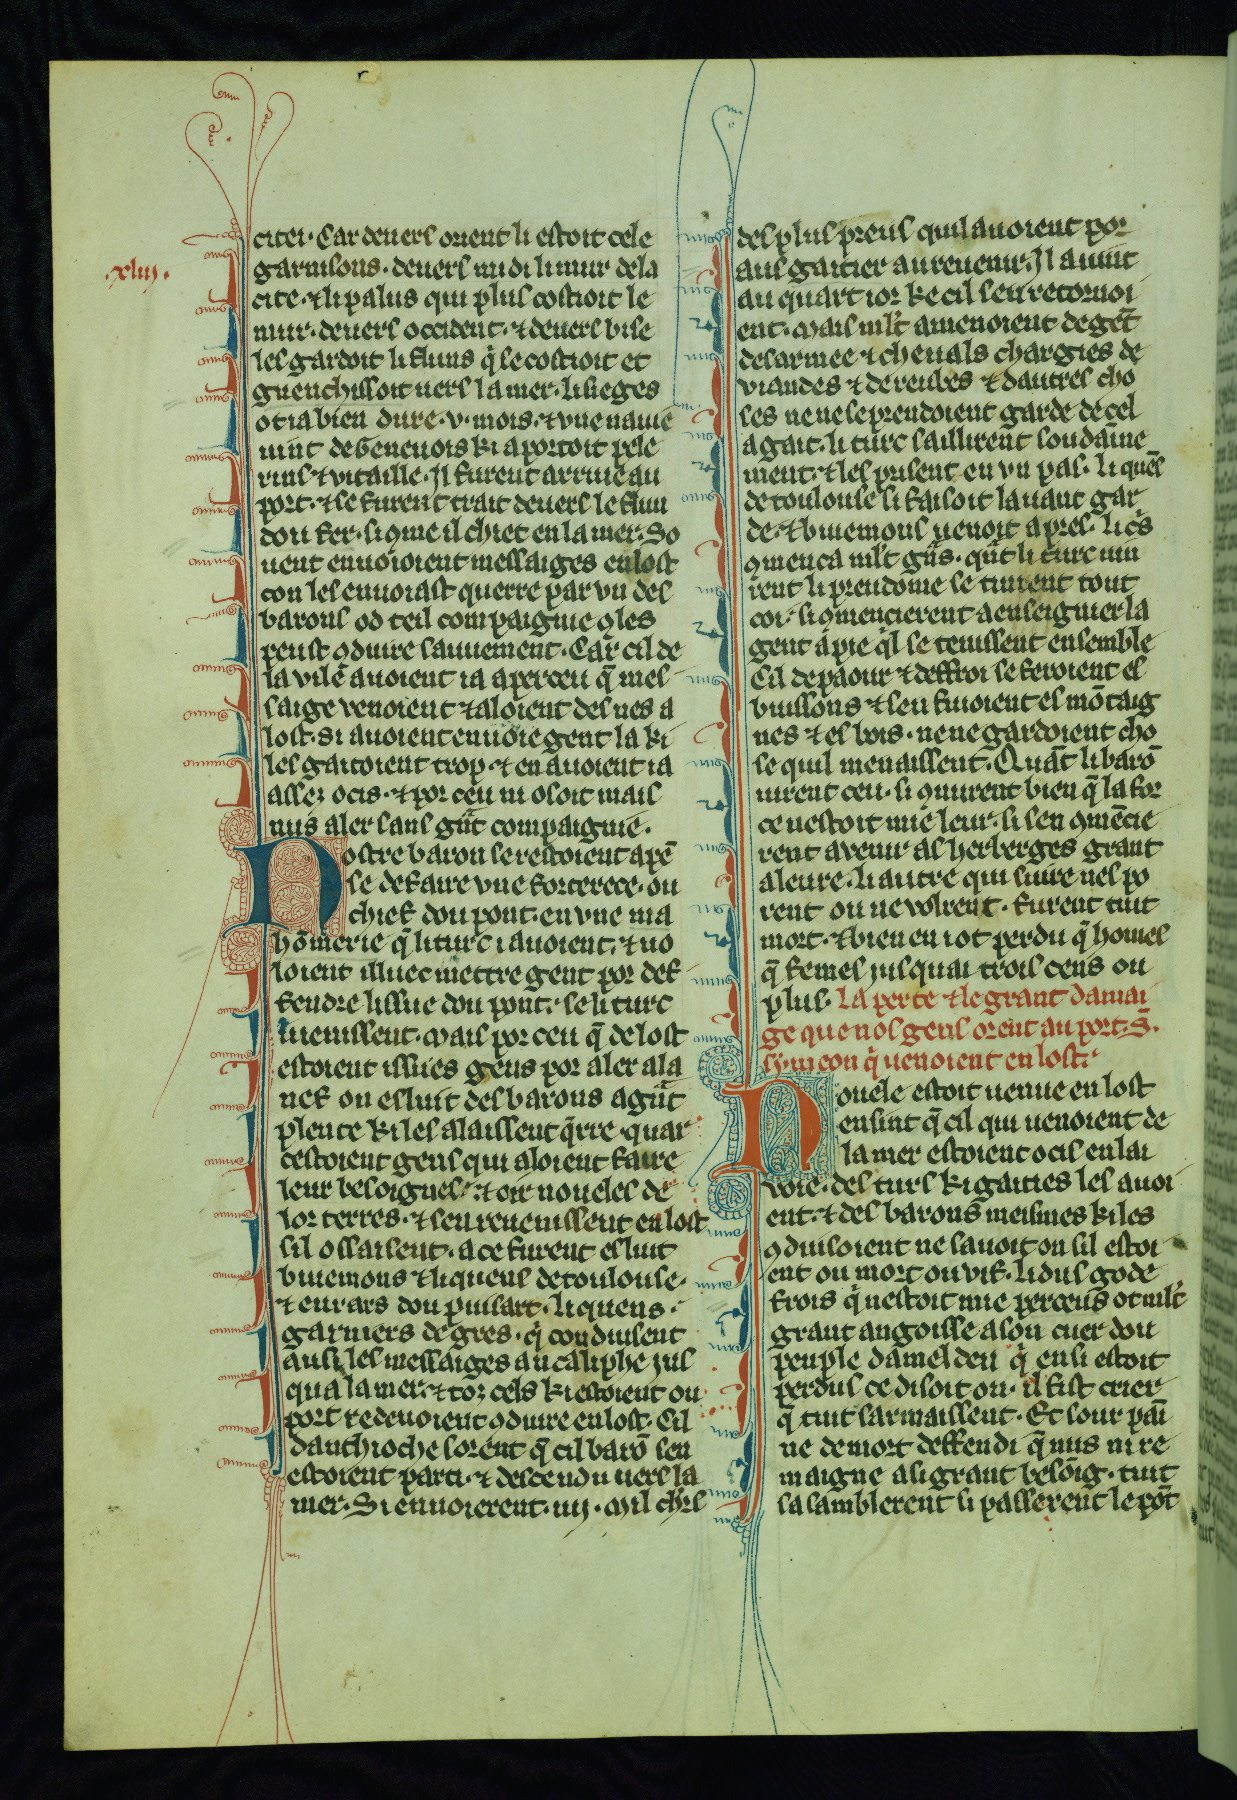 .xliij.
citei. Car deuers orient li estoit cele
garnisons. deuers midi li mur de la
cite. ⁊ li palus qui plus costioit le
mur. deuers occident. ⁊ deuers bise
les gardoit li fluns q̇ le costioit et
guenchissoit uers la mer. li sieges
ot ia bien dure .v. mois. ⁊ vne nauie
uint de Geneuois ki aportoit pele
rins ⁊ vitaille. Il furent arriue au
port. ⁊ se furent trait deuers le flun
dou fer. si ꝯme il chiet en la mer. So
uent enuoioient messaiges en lost
con les enuoiast querre par vn des
barons od teil compaignie ꝯ les
peust ꝯduire sauuement. Car cil de
la vile auoient ia aperceu q̄ mes
saige venoient ⁊ aloient des nes a
lost. si auoient enuoie gent la ki
les gaitoient trop. ⁊ en auoient ia
assez ocis. ⁊ por ceu ni osoit mais
nus aler sans gn̄t compaignie.
Nostre baron se restoient apē
se de faire vne forterece. ou
chief dou pont. en vne ma
hōmerie q̄ li turc i auoient. ⁊ uo
loient illuec mettre gent por def
fendre lissue dou pont. se li turc
iuenissent. Mais por ceu q̄ de lost
estoient issues gens por aler a la
nef ou esluit des barons a gn̄t
plente ki les alaissent q̄rre. quar
cestoient gens qui aloient faire
leur besoignes. ⁊ oir noueles de
lor terres. ⁊ sen reuenissent en lost
sil ossaisent. a ce furent esluit
buiemons ⁊ li queus de toulouse.
⁊ eurars dou puisart. li queus.
garniers de gres. q̇ conduisent
ausi les messaiges au caliphe ius
qua la mer. ⁊ toz cels ki estoient ou
port redeuoient ꝯduire en lost. Cil
danthioche sorent q̄ cil barō sen
estoient parti. ⁊ descendu uers la
mer. Si enuoierent .iiij. Mil chr̄s
des plus preus quil auoient por
aus gaitier au reuenir. Il auint
au quart ior ke cil sen retornoi
ent. Mais ml't amenoient de gēt
desarmee ⁊ cheuals chargies de
viandes ⁊ de reubes ⁊ dautres cho
ses ne ne se prendoient garde de cel
agait. li turc saillirent soudaine
ment. ⁊ les prisent en vn pas. li quēs
de toulouse si faisoit lauant gar
de. ⁊ buiemons uenoit apres. li cs
ꝯmenca ml't gn̄s. qn̄t li turc uin
rent li preudome se tinrent tout
coi. si ꝯmencierent a enseignier la
gent a pie q̇l se tenissent ensemble
Cil de paour ⁊ deffroi se feroient es
buissons ⁊ sen fuioient es mōtaig
nes ⁊ es bois. ne ne gardoient cho
se quil menaissent. Quāt li barō
uirent ceu. si ꝯnurent bien q̄ la for
ce nestoit mie leur. si sen ꝯmēcie
rent a venir as herberges grant
aleure. li autre qui siure nes po
rent ou ne volrent. furent tuit
mort. ⁊ bien en i ot perdu q̄ homes
q̄ femes iusquai trois cens ou
plus. La perte ⁊ le grant damai
ge que nos gens orent au port .S.
symeon q̇ uenoient en lost.
Nouele estoit uenue en lost
ensint q̄ cil qui uenoient de
la mer estoient ocis en lai
voie. des turs ki gaities les auoi
ent. ⁊ des barons meismes ki les
ꝯduisoient ne sauoit on sil estoi
ent ou mort ou vif. li dus gode
frois q̇ nestoit mie perceus ot ml't
grant angoisse a son cuer dou
peuple damel deu q̇ ensi estoit
perdus ce disoit on. il fist crier
q̄ tuit sarmaissent. Et sour pai
ne de mort deffendi q̄ nus ni re
maigne a si grant besoig. tuit
sasamblerent si passerent le pōt